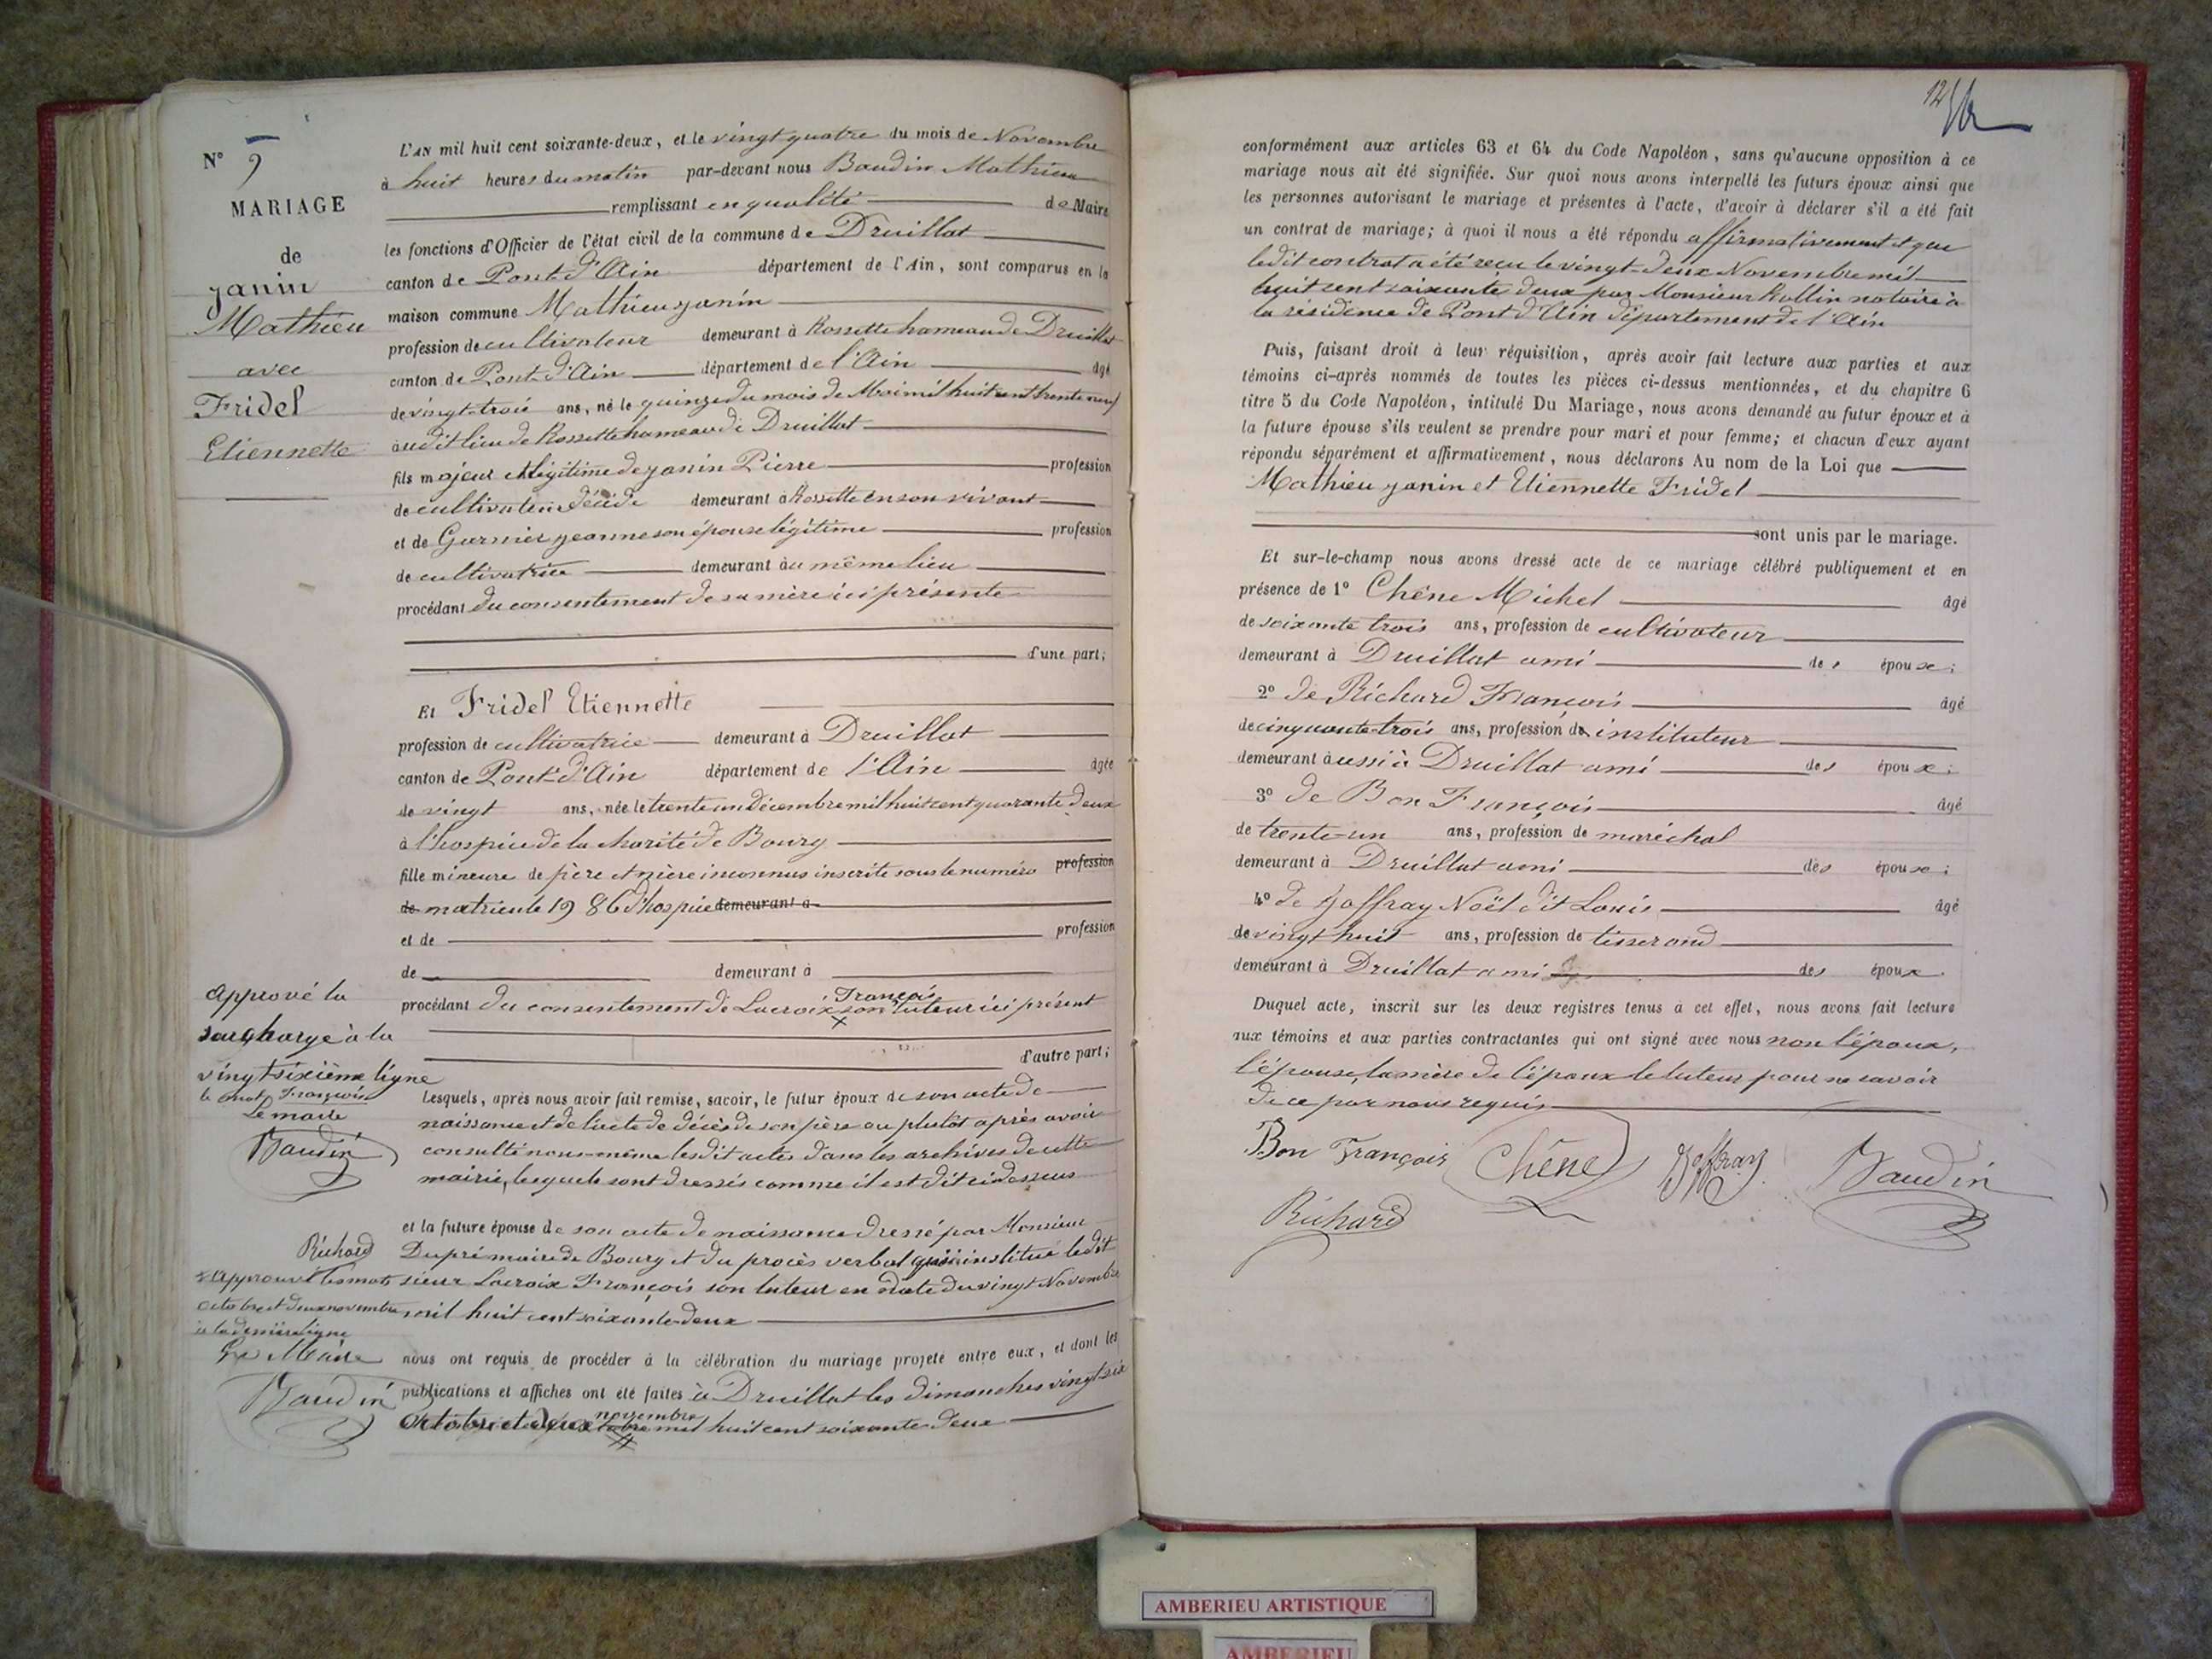 N° 9
MARIAGE
de
Janin
Mathieu
avec
Fridel
Etiennette
L'AN mil huit cent soixante-deux, et le vingt quatre du mois de Novembre
à huit heures du matin par-devant nous Baudin Mathieu
remplissant en qualité de Maire
les fonctions d'Officier de l'état civil de la commune de Druillat
canton de Pont d'Ain département de l'Ain, sont comparus en la
maison commune Mathieu Janin
profession de cultivateur demeurant à Rossette hameau de Druillat
canton de Pont-d'Ain département de l'Ain âgé
de vingt-trois ans, né le quinze du mois de Mai mil huit cent trente neuf
audit lieu de Rossette hameau de Druillat
fils majeur et légitime de Janin Pierre profession
de cultivateur décédé demeurant à Rossette en son vivant
et de Garnier Jeanne son épouse légitime profession
de cultivatrice demeurant au même lieu
procédant du consentement de sa mère ici présente
d'une part;
Et Fridel Etiennette
profession de cultivatrice demeurant à Druillat
canton de Pont-d'Ain département de l'Ain âgée
de vingt ans, née le trente un décembre mil huit cent quarante deux
à l'hospice de la charité de Bourg
fille mineure de père et mère inconnus inscrite sous le numéro profession
de matricule 1986 d'hospice demeurant à
et de profession
de demeurant à
François
procédant du consentement de Lacroix son tuteur ici présent
d'autre part;
Approuvé la
surcharge à la
vingt sixième ligne
le mot François
Le maire
Baudin
Lesquels, après nous avoir fait remise, savoir, le futur époux de son acte de
naissance et de l'acte de décès de son père ou plutôt après avoir
consulté nous-même lesdit actes dans les archives de cette
mairie, lesquels sont dressés comme il est dit ci dessus
et la future épouse de son acte de naissance dressé par Monsieur
Dupré maire de Bourg et du procès verbal qui institue ledit
sieur Lacroix François son tuteur en date du vingt Novembre
mil huit cent soixante-deux
Richard
Approuvé les mots
octobre et deux novembre
à la dernière ligne
Le Maire
Baudin
nous ont requis de procéder à la célébration du mariage projeté entre eux, et dont les
publications et affiches ont été faites à Druillat les dimanches vingt six
novembre
octobre et deux mil huit cent soixante deux
12
conformément aux articles 63 et 64 du Code Napoléon, sans qu'aucune opposition à ce
mariage nous ait été signifiée. Sur quoi nous avons interpellé les futurs époux ainsi que
les personnes autorisant le mariage et présentes à l'acte, d'avoir à déclarer s'il a été fait
un contrat de mariage; à quoi il nous a été répondu affirmativement et que
ledit contrat a été reçu le vingt-deux Novembre mil
huit cent soixante deux par Monsieur Rollin notaire à
la résidence de Pont d'Ain département de l'Ain
Puis, faisant droit à leur réquisition, après avoir fait lecture aux parties et aux
témoins ci-après nommés de toutes les pièces ci-dessus mentionnées, et du chapitre 6
titre 5 du Code Napoléon, intitulé Du Mariage, nous avons demandé au futur époux et à
la future épouse s'ils veulent se prendre pour mari et pour femme; et chacun d'eux ayant
répondu séparément et affirmativement, nous déclarons Au nom de la Loi que
Mathieu Janin et Etiennette Fridel
sont unis par le mariage.
Et sur-le-champ nous avons dressé acte de ce mariage célébré publiquement et en
présence de 1° Chêne Michel âgé
de soixante trois ans, profession de cultivateur
demeurant à Druillat ami des époux;
2° de Richard François âgé
de cinquante-trois ans, profession de instituteur
demeurant aussi à Druillat ami des époux;
3° de Bon François âgé
de trente-un ans, profession de maréchal
demeurant à Druillat ami des époux;
4° de Joffray Noël dit Louis âgé
de vingt huit ans, profession de tisserand
demeurant à Druillat ami des époux.
Duquel acte, inscrit sur les deux registres tenus à cet effet, nous avons fait lecture
aux témoins et aux parties contractantes qui ont signé avec nous non l'époux,
l'épouse, la mère de l'époux le tuteur pour ne savoir
de ce par nous requis
Bon François Chêne Joffray Baudin
Richard
AMBERIEU ARTISTIQUE
AMBERIEU